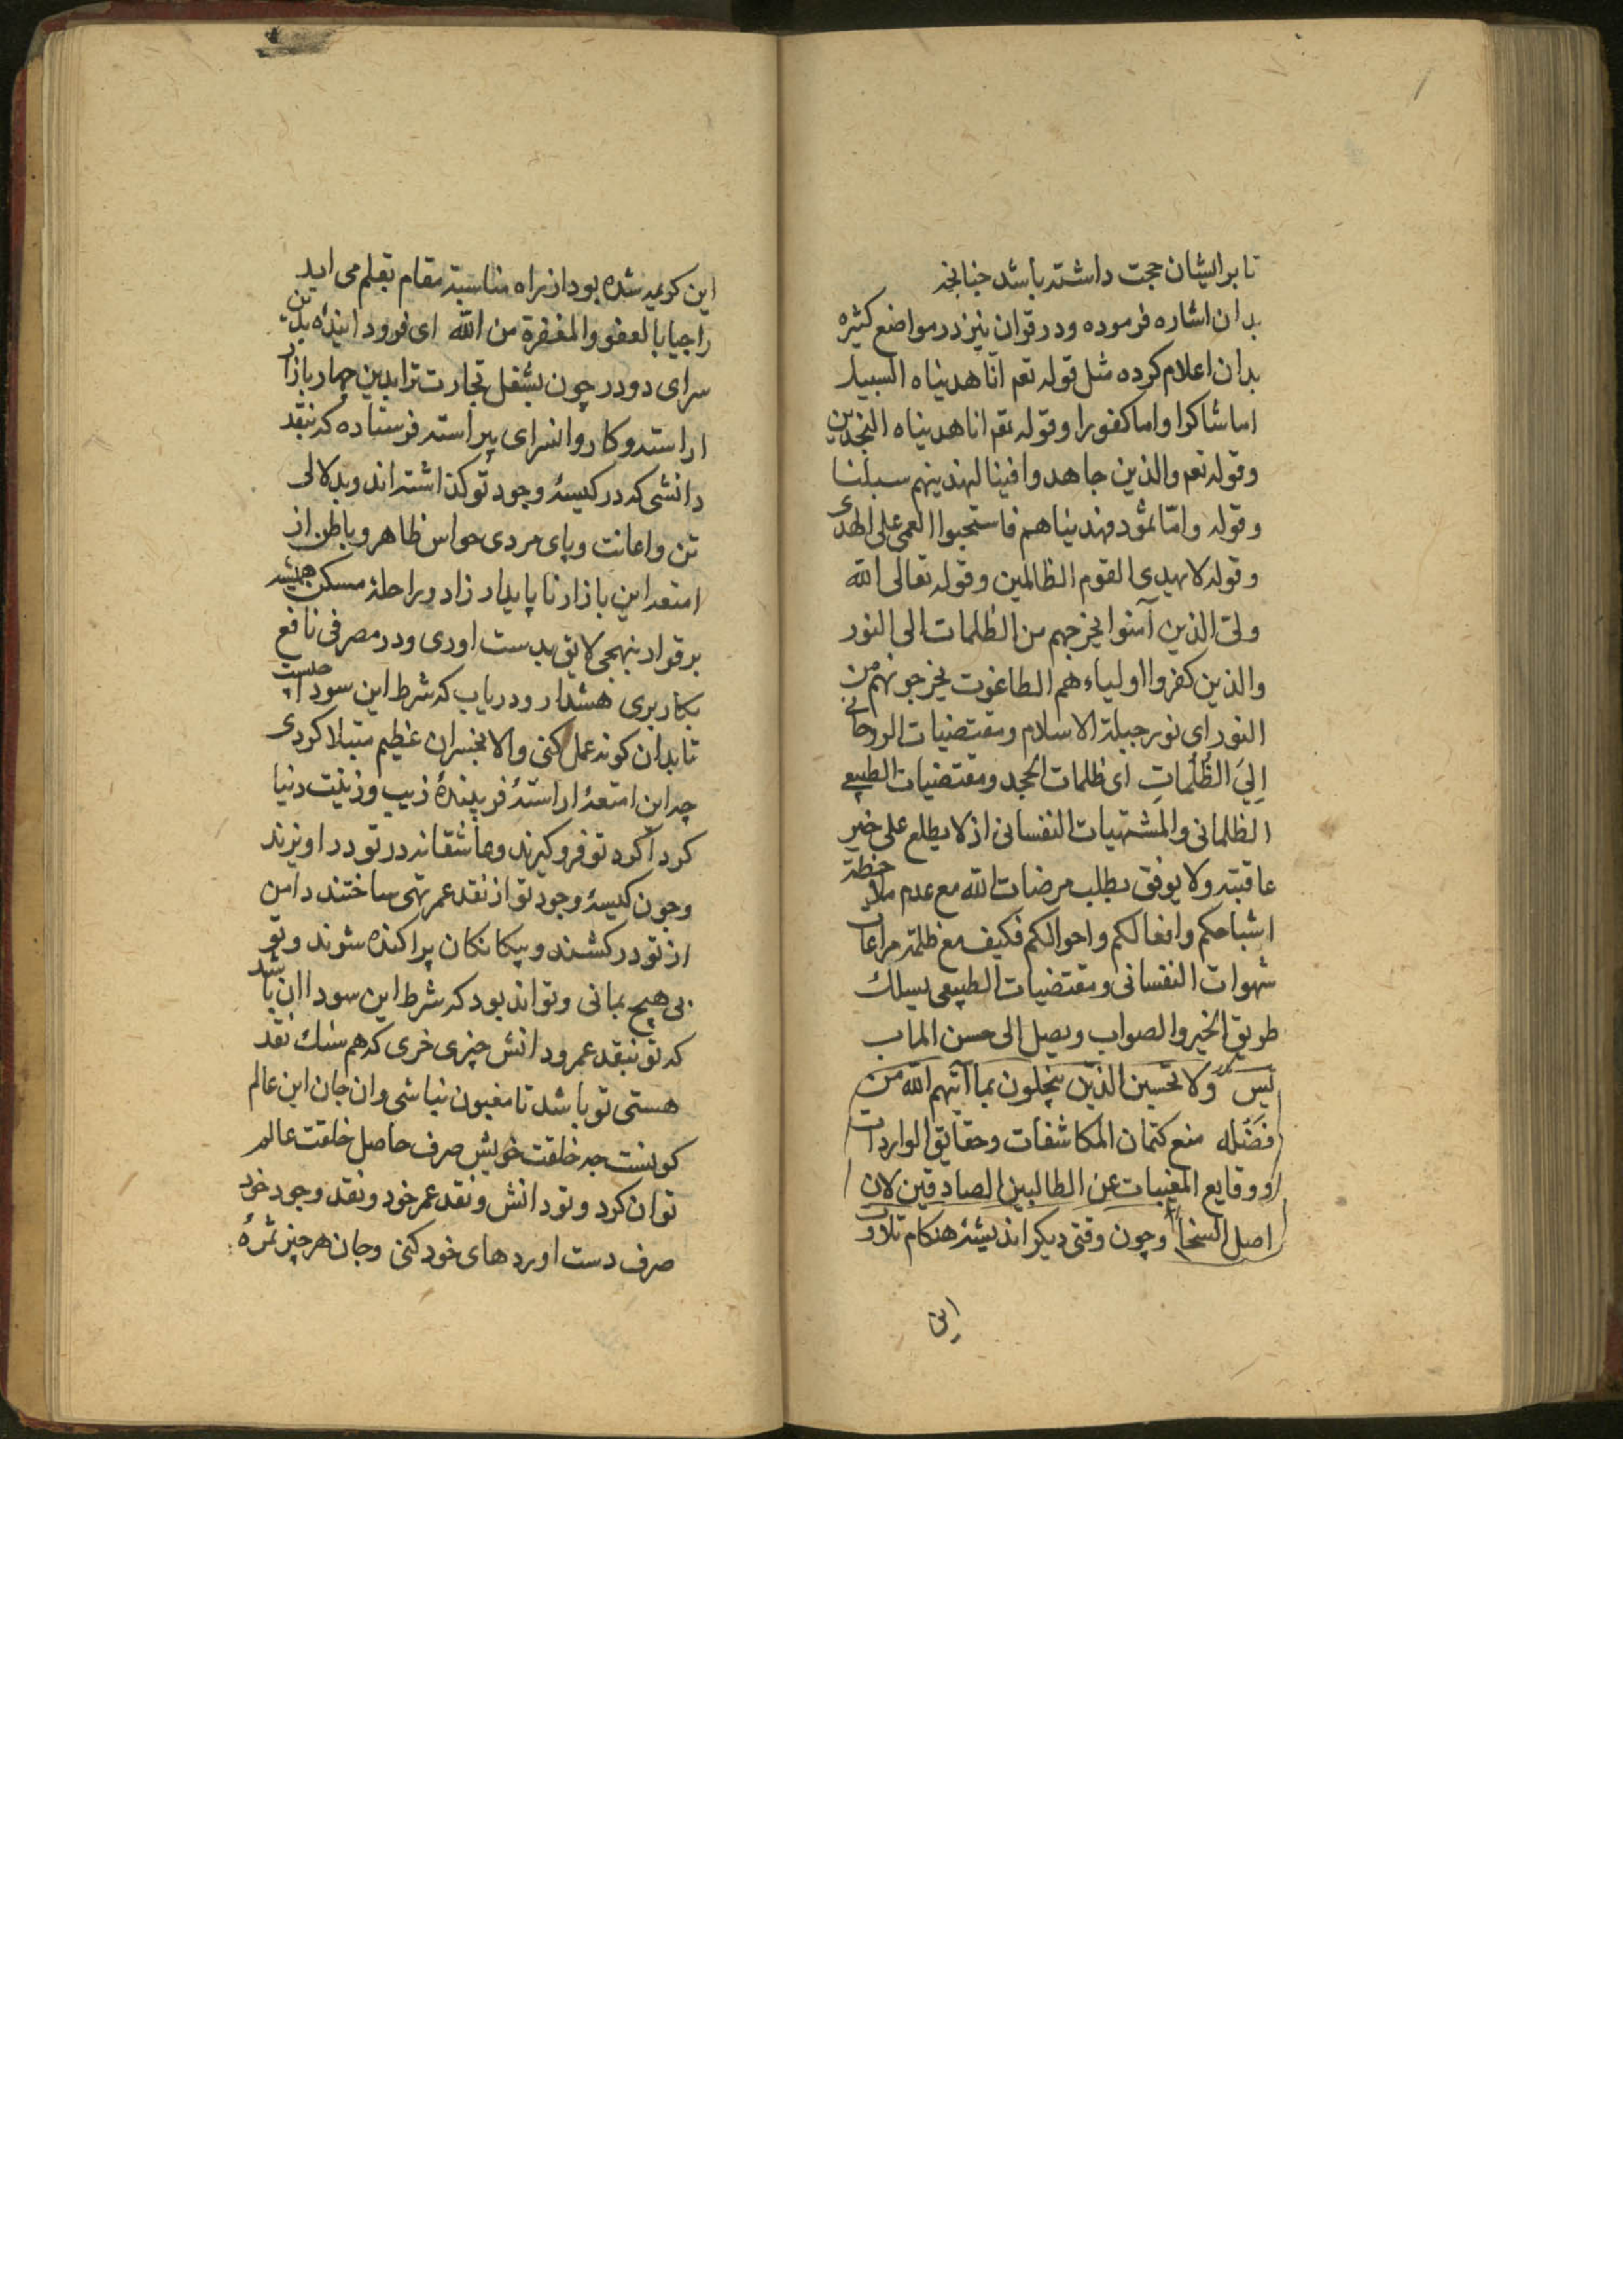 تا بر ایشان حجت داشته باشد چنانچه
بدان اشاره فرموده ودر قران نیز در مواضع کثیره
بدان اعلام کرده مثل قوله تعم انّا هدیناه السبیل
اما شاکرا واما کفورا وقوله تعم انا هدیناه النجدین
وقوله تعم والذین جاهدوا فینا لنهدینهم سبلنا
وقوله وامّا ثمود فهدیناهم فاستحبوا العمی علی الهدی
وقوله لا یهدی القوم الظالمین وقوله تعالی الله
ولیّ الذین آمنوا یخرجهم من الظلمات الی النور
والذین کفروا اولیاءهم الطاغوت یخرجونهم من
النور ای نور جبلة الاسلام ومقتضیات الروحانی
اِلیَ الظُّلُماتِ ای ظلمات الجحد ومقتضیات الطبیعی
الظلمانی والمشتهیات النفسانی اذ لا یطلع علی خیر
عاقبته ولا یوفق بطلب مرضات الله مع عدم ملاحظة
اشباحکم وافعالکم واحوالکم فکیف مع ظلمة مراعات
شهوات النفسانی ومقتضیات الطبیعی یسلک
طریق الخیر والصواب ویصل الی حسن الماب
ولا تحسبن الذین یبخلون بما آتیهم الله من
فَضله منع کتمان المکاشفات وحقایق الواردات
ووقایع المغیبات عن الطالبین الصادقین لان
اصل السخا وچون وقتی دیکر اندیشهٔ هنکام تلاوت
این
این کریمه شده بود از راه مناسبة مقام بقلم می اید
راجیا بالعفو والمغفرة من الله ای فرود ایندهٔ بدین
سرای دو در چون بشغل تجارت ترا بدین چهار بازار
اراسته وکاروانسرای پیراسته فرستاده که بنقد
دانشی که در کیسهٔ وجود تو کذاشته اند وبدلالی
تن واعانت وپای مردی حواس ظاهر وباطن از
امتعه این بازار ناپایدار زاد وراحلهٔ مسکن همیشه
برقرار بنهجی لایق بدست اوری ودر مصرفی نافع
بکار بری هشدار ودریاب که شرط این سودا چیست
تا بدان کونه عمل کنی والا بخسران عظیم مبتلا کردی
چه این امتعهٔ اراستهٔ فریبندهٔ زیب وزینت دنیا
کرداکرد تو فرو کیرند وعاشقانه در تو دراویزند
وچون کیسهٔ وجود تو از نقد عمر تهی ساختند دامن
از تو درکشند وبیکانکان پراکنده شوند وتو
بی هیچ بمانی وتواند بود که شرط این سودا ان باشد
که تو بنقد عمر ودانش چیزی خری که هم سنک نقد
هستی تو باشد تا مغبون نباشی وان جان این عالم
کونست چه خلقت خویش صرف حاصل خلقت عالم
توان کرد وتو دانش ونقد عمر خود ونقد وجود خود
صرف دست اوردهای خود کنی وجان هر چیز ثمرهٔ